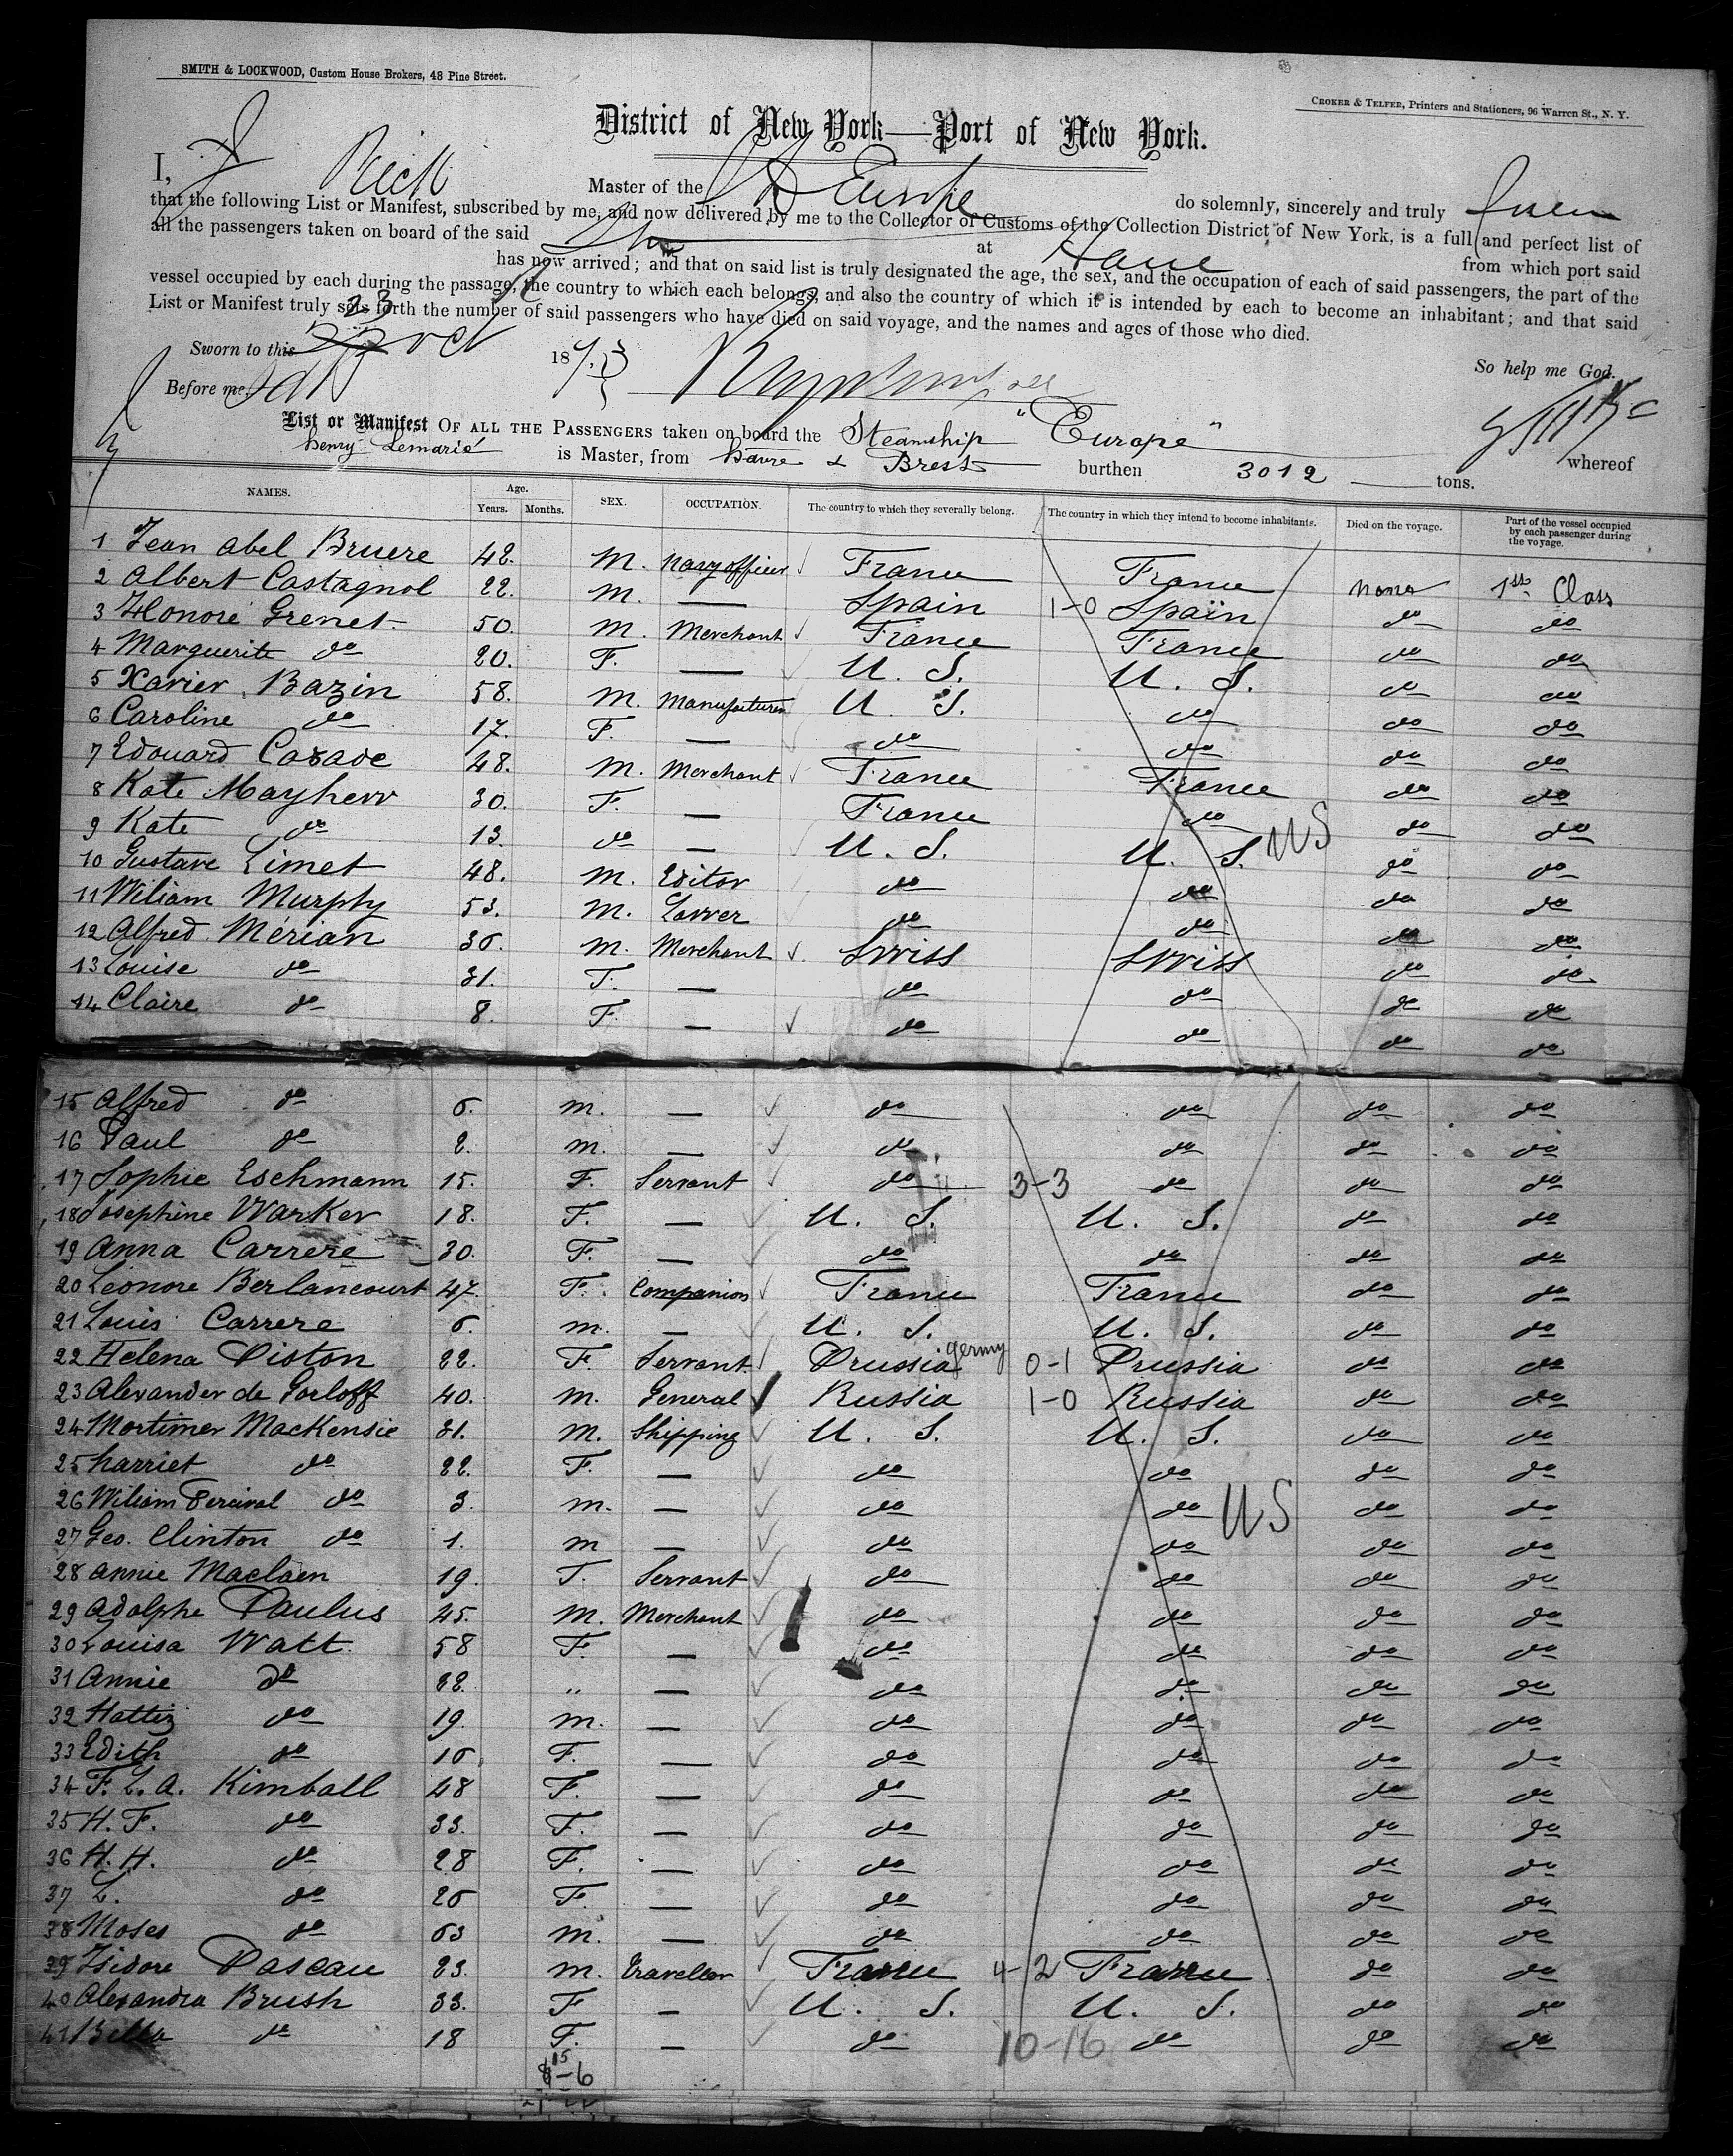 SMITH & LOCKWOOD, Custom House Brokers, 48 Pine Street.
CROKER & TELFER, Printers and Stationers, 96 Warren St., N. Y.
District of New York—Port of New York.
I, Master of the do solemnly, sincerely and truly
that the following List or Manifest, subscribed by me, and now delivered by me to the Collector of Customs of the Collection District of New York, is a full and perfect list of
all the passengers taken on board of the said at from which port said
has now arrived; and that on said list is truly designated the age, the sex, and the occupation of each of said passengers, the part of the
vessel occupied by each during the passage, the country to which each belongs, and also the country of which it is intended by each to become an inhabitant; and that said
List or Manifest truly sets forth the number of said passengers who have died on said voyage, and the names and ages of those who died.
Sworn to this 23 Oct 187
So help me God.
Before me
List or Manifest OF ALL THE PASSENGERS taken on board the Steamship "Europe" whereof
Henry Lemarié is Master, from Havre & Brest burthen 3012 tons.
NAMES. Age. Years. Months. SEX. OCCUPATION. The country to which they severally belong. The country in which they intend to become inhabitants. Died on the voyage. Part of the vessel occupied by each passenger during the voyage.
1 Jean Abel Bruere 42. M. Navy officer France France none 1st Class
2 Albert Castagnol 22. M. — Spain 1-0 Spain do do
3 Honoré Grenet 50. M. Merchant France France do do
4 Marguerite do 20. F. — U. S. U. S. do do
5 Xavier Bazin 58. M. Manufacturer U. S. do do do
6 Caroline do 17. F. — do do do do
7 Edouard Casade 48. M. Merchant France France do do
8 Kate Mayherr 30. F. — France do do do
9 Kate do 13. do — U. S. U. S. US do do
10 Gustave Limet 48. M. Editor do do do do
11 Wiliam Murphy 53. M. Lawer do do do do
12 Alfred Mérian 36. M. Merchant Swiss Swiss do do
13 Louise do 31. F. — do do do do
14 Claire do 8. F. — do do do do
15 Alfred do 6. M. — do do do do
16 Paul do 2. M. — do do do do
17 Sophie Eschmann 15. F. Servant do 3-3 do do do
18 Josephine Warker 18. F. — U. S. U. S. do do
19 Anna Carrere 30. F. — do do do do
20 Leonore Berlancourt 47. F. Companion France France do do
21 Louis Carrere 6. M. — U. S. U. S. do do
22 Helena Piston 22. F. Servant Prussia germy 0-1 Prussia do do
23 Alexander de Gorloff 40. M. General Russia 1-0 Russia do do
24 Mortimer MacKensie 31. M. Shipping U. S. U. S. do do
25 Harriet do 22. F. — do do do do
26 Wiliam Percival do 3. M. — do do US do do
27 Geo. Clinton do 1. M — do do do do
28 Annie Maclaen 19. F. Servant do do do do
29 Adolphe Paulus 45. M. Merchant do do do do
30 Louisa Watt 58 F. — do do do do
31 Annie do 22. " — do do do do
32 Hattie do 19. M. — do do do do
33 Edith do 16. F. — do do do do
34 F. L. A. Kimball 48 F. — do do do do
35 H. F. do 33. F. — do do do do
36 H. H. do 28 F. — do do do do
37 L. do 26 F. — do do do do
38 Moses do 63 M. — do do do do
39 Isidore Pascau 23. M. Traveller France 4-2 France do do
40 Alexandra Brush 33. F — U. S. U. S. do do
41 Bella do 18 F. — do 10-16 do do do